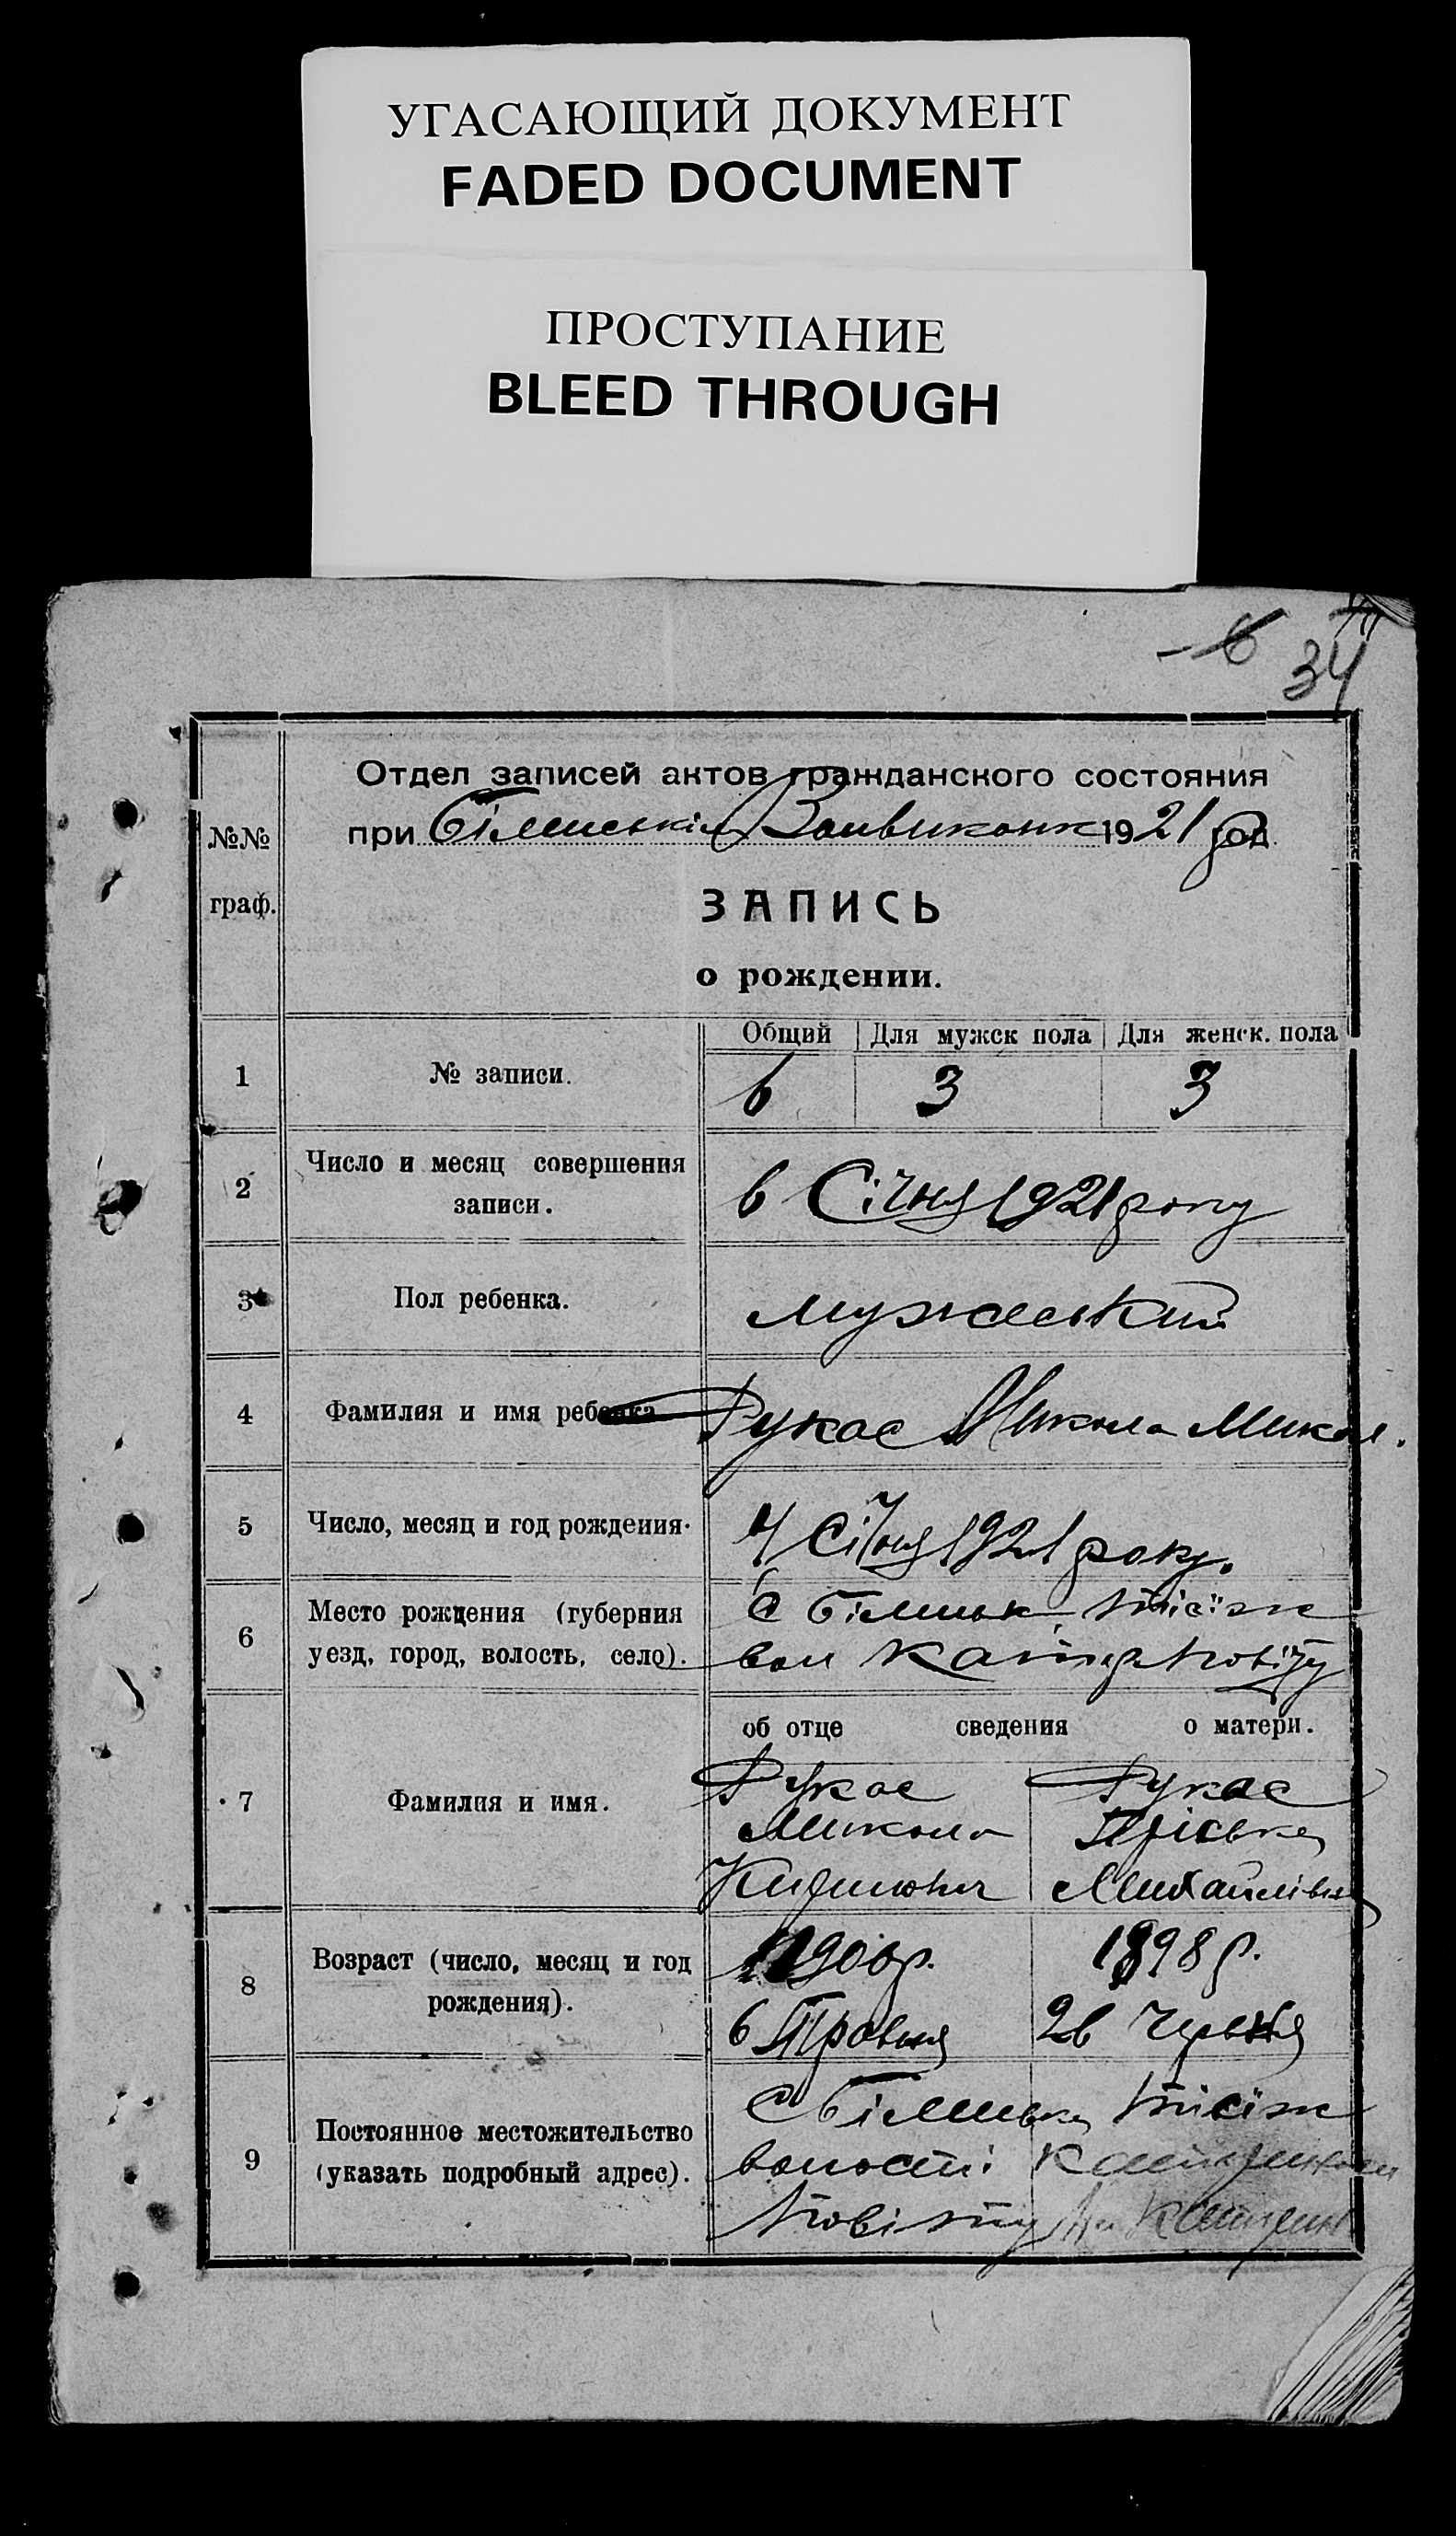 УГАСАЮЩИЙ ДОКУМЕНТ
FADED DOCUMENT
ПРОСТУПАНИЕ
BLEED THROUGH
6
34
Отдел записей актов гражданского состояния
при 1921 год
№№
граф.
ЗАПИСЬ
о рождении.
Общий Для мужск пола Для женск. пола
1 № записи. 6 3 3
2 Число и месяц совершения
записи. 6 Січня 1921 року
3 Пол ребенка. мужеський
4 Фамилия и имя ребенка Рукас Микола Микол.
5 Число, месяц и год рождения. 4 Січня 1921 року.
6 Место рождения (губерния
уезд, город, волость, село).
с
вол
об отце сведения о матери.
7 Фамилия и имя.
Рукас Рукас
Микола Пріська
Михайлівна
8 Возраст (число, месяц и год
рождения).
1900р. 1898 р.
6 Травня 26 Червня
9 Постоянное местожительство
(указать подробный адрес).
С
волости
повіту